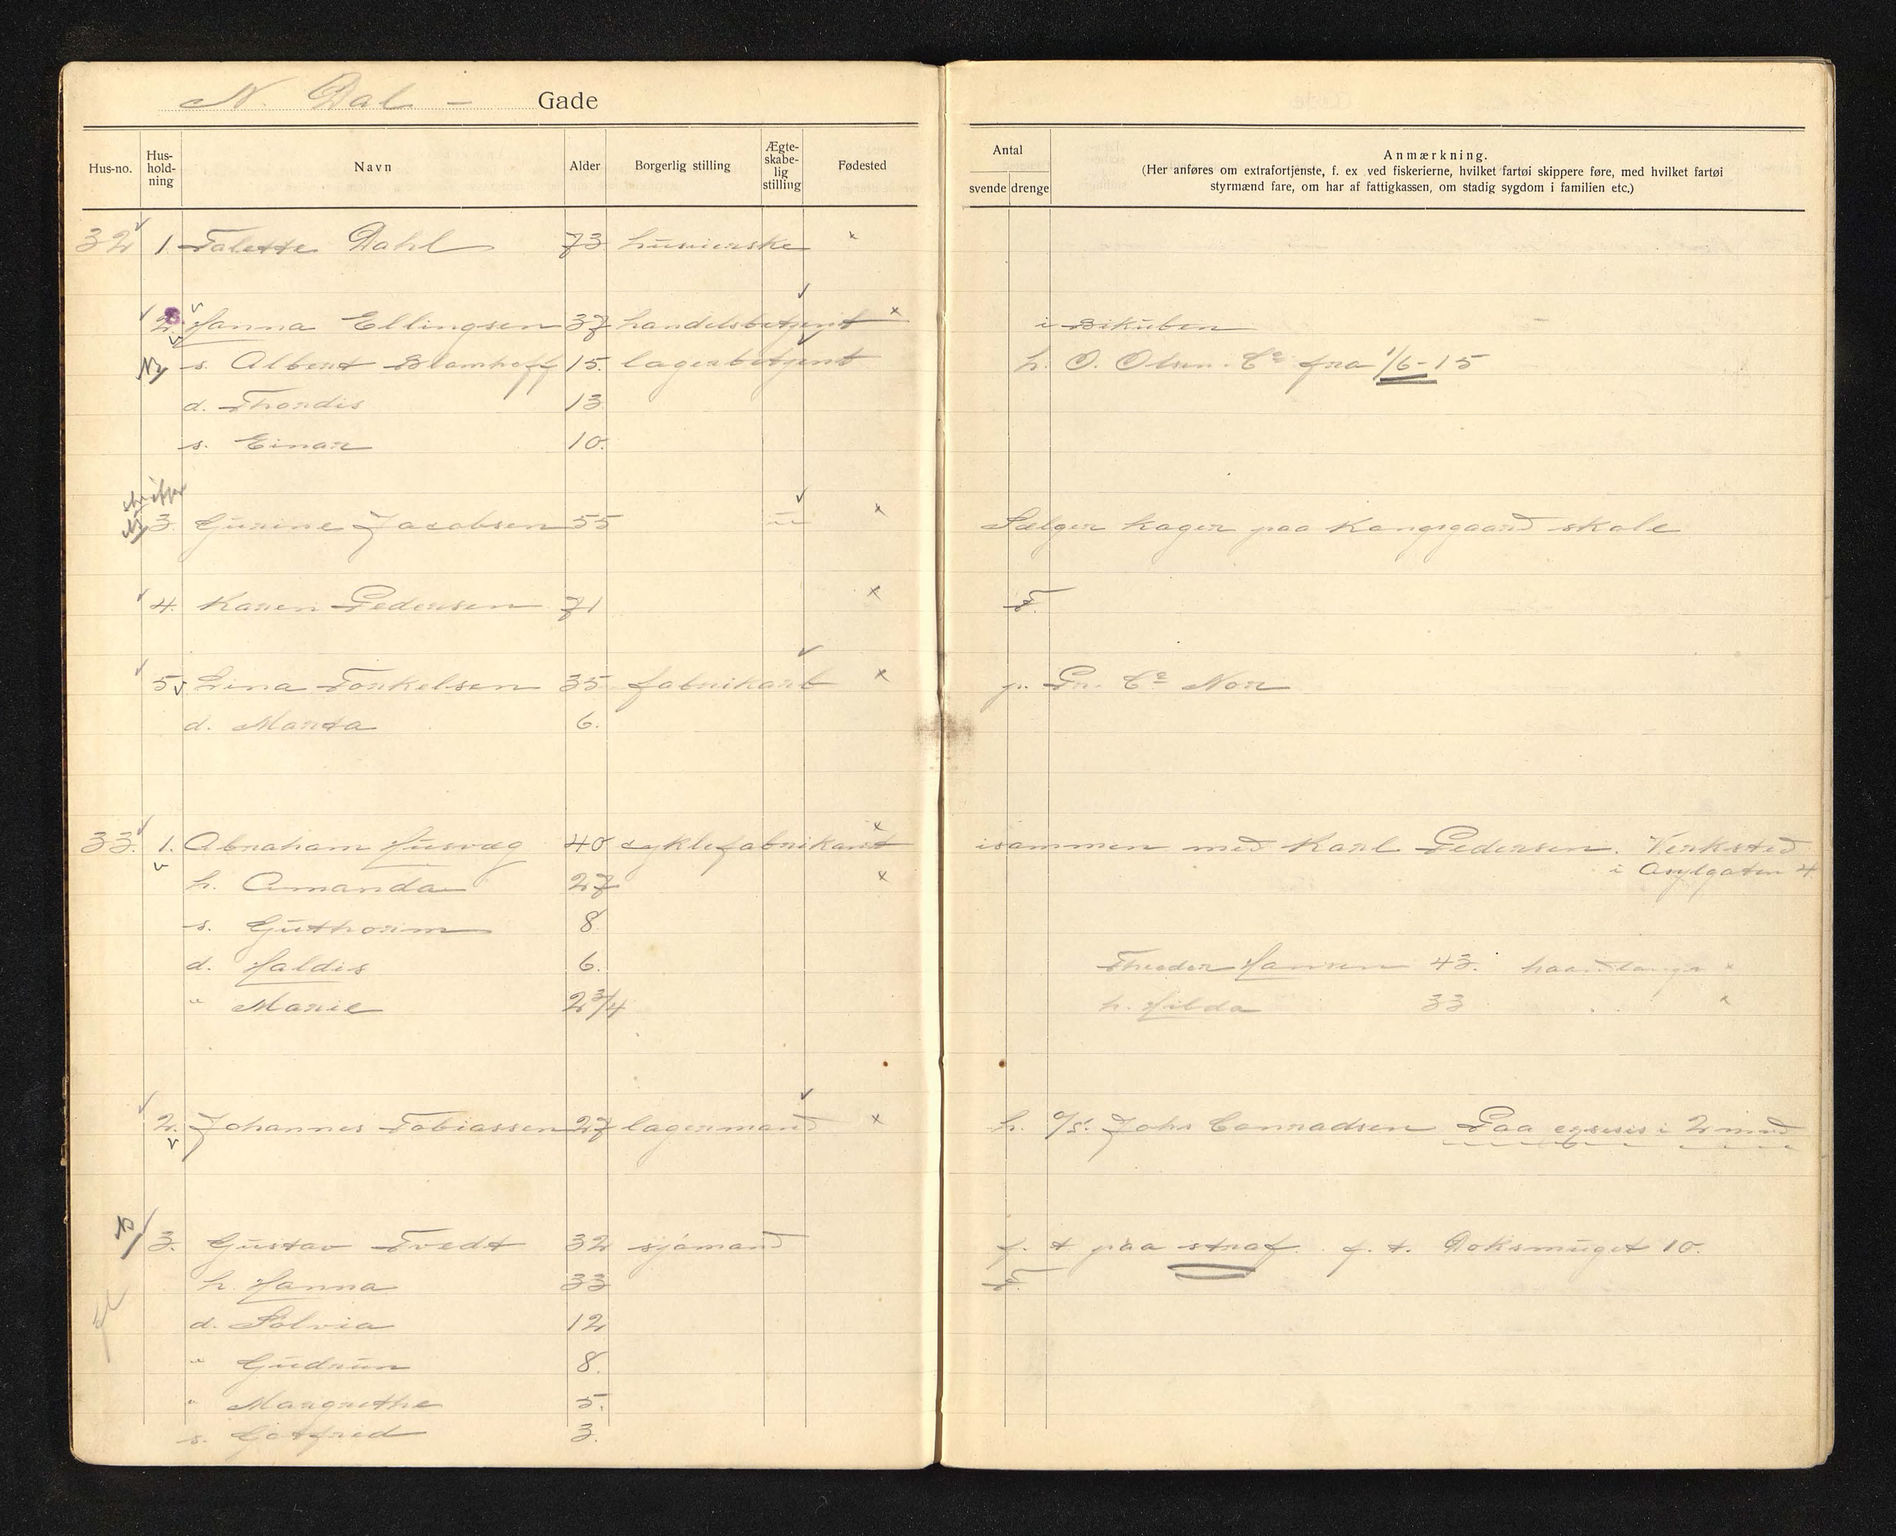 N. Dal – Gade
Hus-no. Hus-hold-ning Navn Alder Borgerlig stilling Ægte-skabe-lig stilling Fødested
Antal
svende drenge
Anmærkning.
(Her anføres om extrafortjenste, f. ex ved fiskerierne, hvilket fartøi skippere føre, med hvilket fartøi
styrmænd fare, om har af fattigkassen, om stadig sygdom i familien etc.)
32 1. Talette Dahl 73 husvierske ×
2. Hanna Ellingsen 37 handelsbetjent × i Bikuben
Ny s. Albert Blomhoff 15. lagerbetjent h. O. Olsen. Co fra 1/6-15
d. Thordis 13
s. Einar 10.
3. Gurine Jacobsen 55 × Sælger kager paa Kongsgaard skole
4. Karen Pedersen 71 × F.
5 Lina Torkelsen 35 fabrikarb × p. Pr. Co Nor
d. Marta 6.
33. 1. Abraham Husvæg 40 cyklefabrikant × isammen med Karl Pedersen. Verksted
i Asylgaten 4
h. Amanda 27 ×
s. Guthorm 8
d. Haldis 6. Theodor Hansen 43. haandlanger ×
" Marie 2 3/4 h. Hilda 33 ×
2. Johannes Tobiassen 27 lagermand × h. a/s. Johs Conradsen Paa exsesis i 2 mnd
3. Gustav Tvedt 32 sjømand f. t paa straf. f. t. Doksmuget 10.
h. Hanna 33 F.
d. Solvia 12
" Gudrun 8.
" Margrethe 5.
s. Gotfred 3.